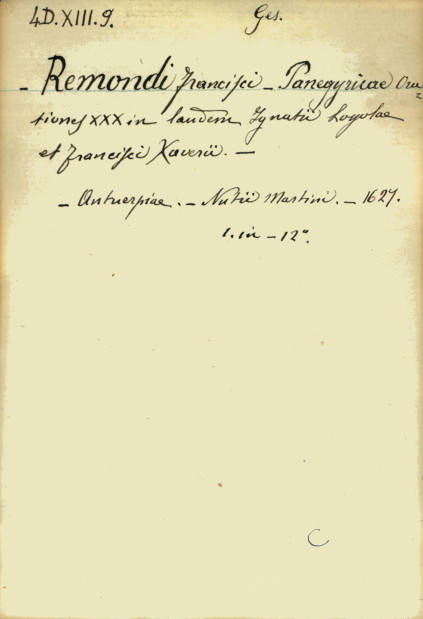 4D.XIII.9. Ges.
- Remondi Francisci - Panegyricae Ora=
tiones XXX in laudem Ignatii Loyolae
et Francisci Xaverii. -
- Antuerpiae. - Nutii Martini. - 1627.
1. in - 12°.
C